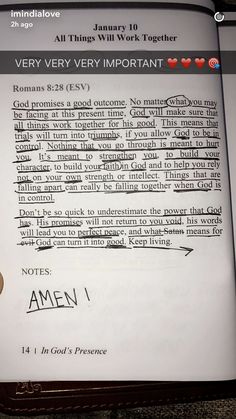 imindialove
2h ago
January 10
All Things Will Work Together
VERY VERY VERY IMPORTANT ❤️❤️❤️🎯
Romans 8:28 (ESV)
God promises a good outcome. No matter what you may
be facing at this present time, God will make sure that
all things work together for his good. This means that
trials will turn into triumphs, if you allow God to be in
control. Nothing that you go through is meant to hurt
you. It's meant to strengthen you, to build your
character, to build your faith in God and to help you rely
not on your own strength or intellect. Things that are
falling apart can really be falling together when God is
in control.
Don't be so quick to underestimate the power that God
has. His promises will not return to you void, his words
will lead you to perfect peace, and what Satan means for
evil God can turn it into good. Keep living.
NOTES:
AMEN!
14 | In God's Presence